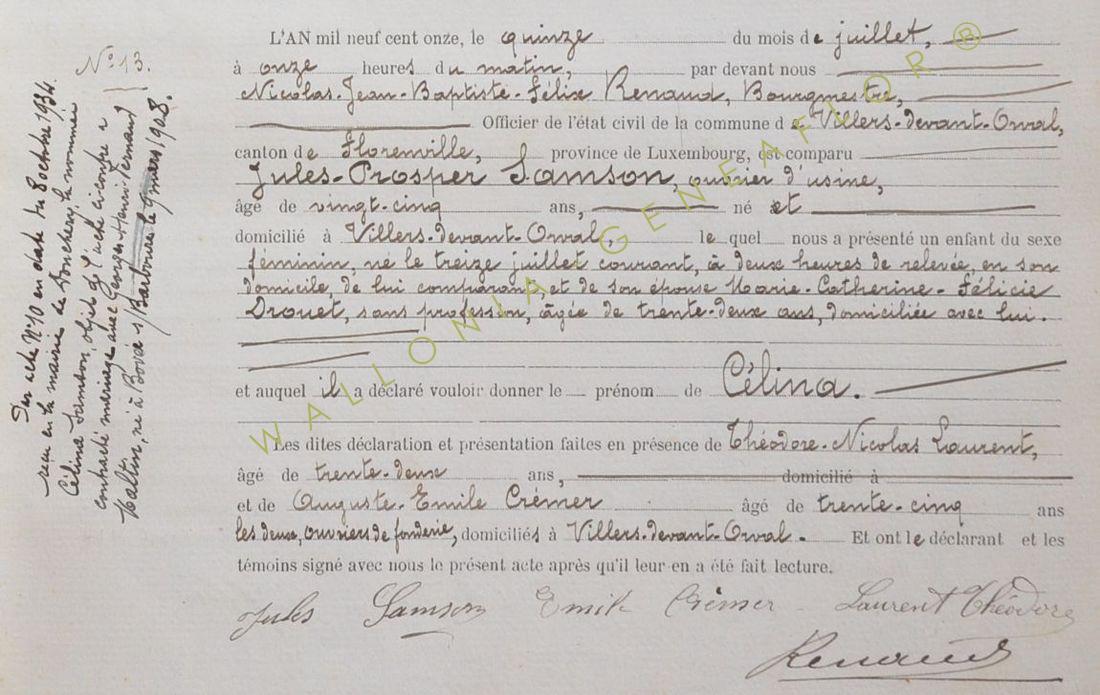 N° 13.
Par acte N° 10 en date du 8 octobre 1934
reçu en la mairie de Donchery, la nommée
Célina Samson, objet de l'acte ci-contre a
contracté mariage avec Georges Henri Fernand
Maltin, né à
le 9 mars 1908.
L'AN mil neuf cent onze, le quinze du mois de juillet,
à onze heures du matin, par devant nous
Nicolas-Jean-Baptiste-Félix Renaud, Bourgmestre,
Officier de l'état civil de la commune de Villers-devant-Orval,
canton de Florenville, province de Luxembourg, est comparu
Jules-Prosper Samson, ouvrier d'usine,
âgé de vingt-cinq ans, né et
domicilié à Villers-devant-Orval, lequel nous a présenté un enfant du sexe
féminin, né le treize juillet courant, à deux heures de relevée, en son
domicile, de lui comparant, et de son épouse Marie-Catherine-Félicie
Drouet, sans profession, âgée de trente-deux ans, domiciliée avec lui.
et auquel il a déclaré vouloir donner le prénom de Célina.
Les dites déclaration et présentation faites en présence de Théodore-Nicolas Laurent,
âgé de trente-deux ans, domicilié à
et de Auguste-Emile Crémer âgé de trente-cinq ans
les deux, ouvriers de fonderie, domiciliés à Villers-devant-Orval. Et ont le déclarant et les
témoins signé avec nous le présent acte après qu'il leur en a été fait lecture.
Jules Samson Emile Crémer Laurent Théodore
Renaud
WALLONIA GENEAFLOR ®